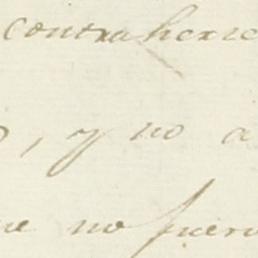 contraherse
, y no a
no fuero